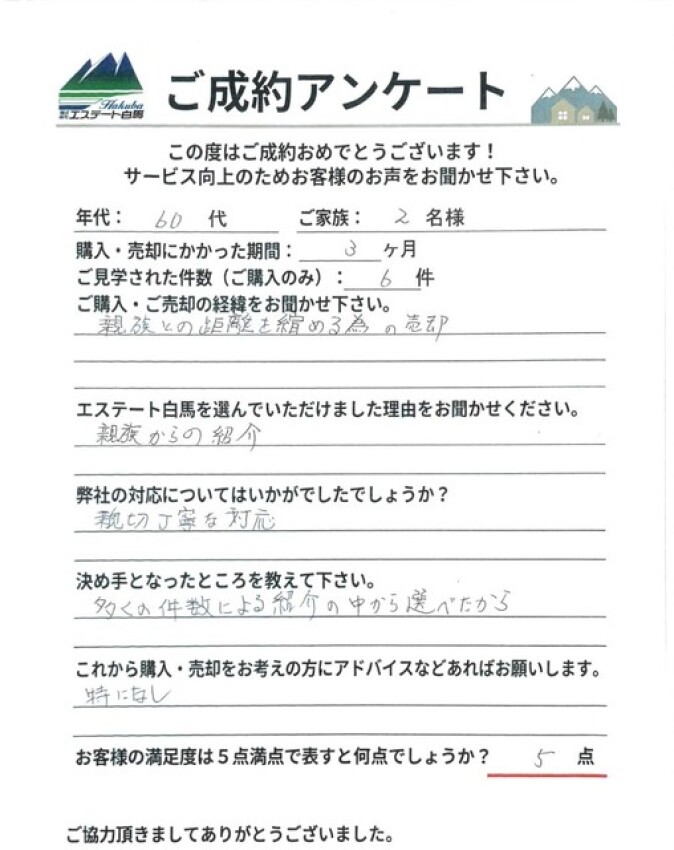 Hakuba
株式会社エステート白馬
ご成約アンケート
この度はご成約おめでとうございます！
サービス向上のためお客様のお声をお聞かせ下さい。
年代： 60 代 ご家族： 2 名様
購入・売却にかかった期間： 3 ヶ月
ご見学された件数（ご購入のみ）： 6 件
ご購入・ご売却の経緯をお聞かせ下さい。
親族との距離を縮める為の売却
エステート白馬を選んでいただけました理由をお聞かせください。
親族からの紹介
弊社の対応についてはいかがでしたでしょうか？
親切丁寧な対応
決め手となったところを教えて下さい。
多くの件数による紹介の中から選べたから
これから購入・売却をお考えの方にアドバイスなどあればお願いします。
特になし
お客様の満足度は５点満点で表すと何点でしょうか？ 5 点
ご協力頂きましてありがとうございました。